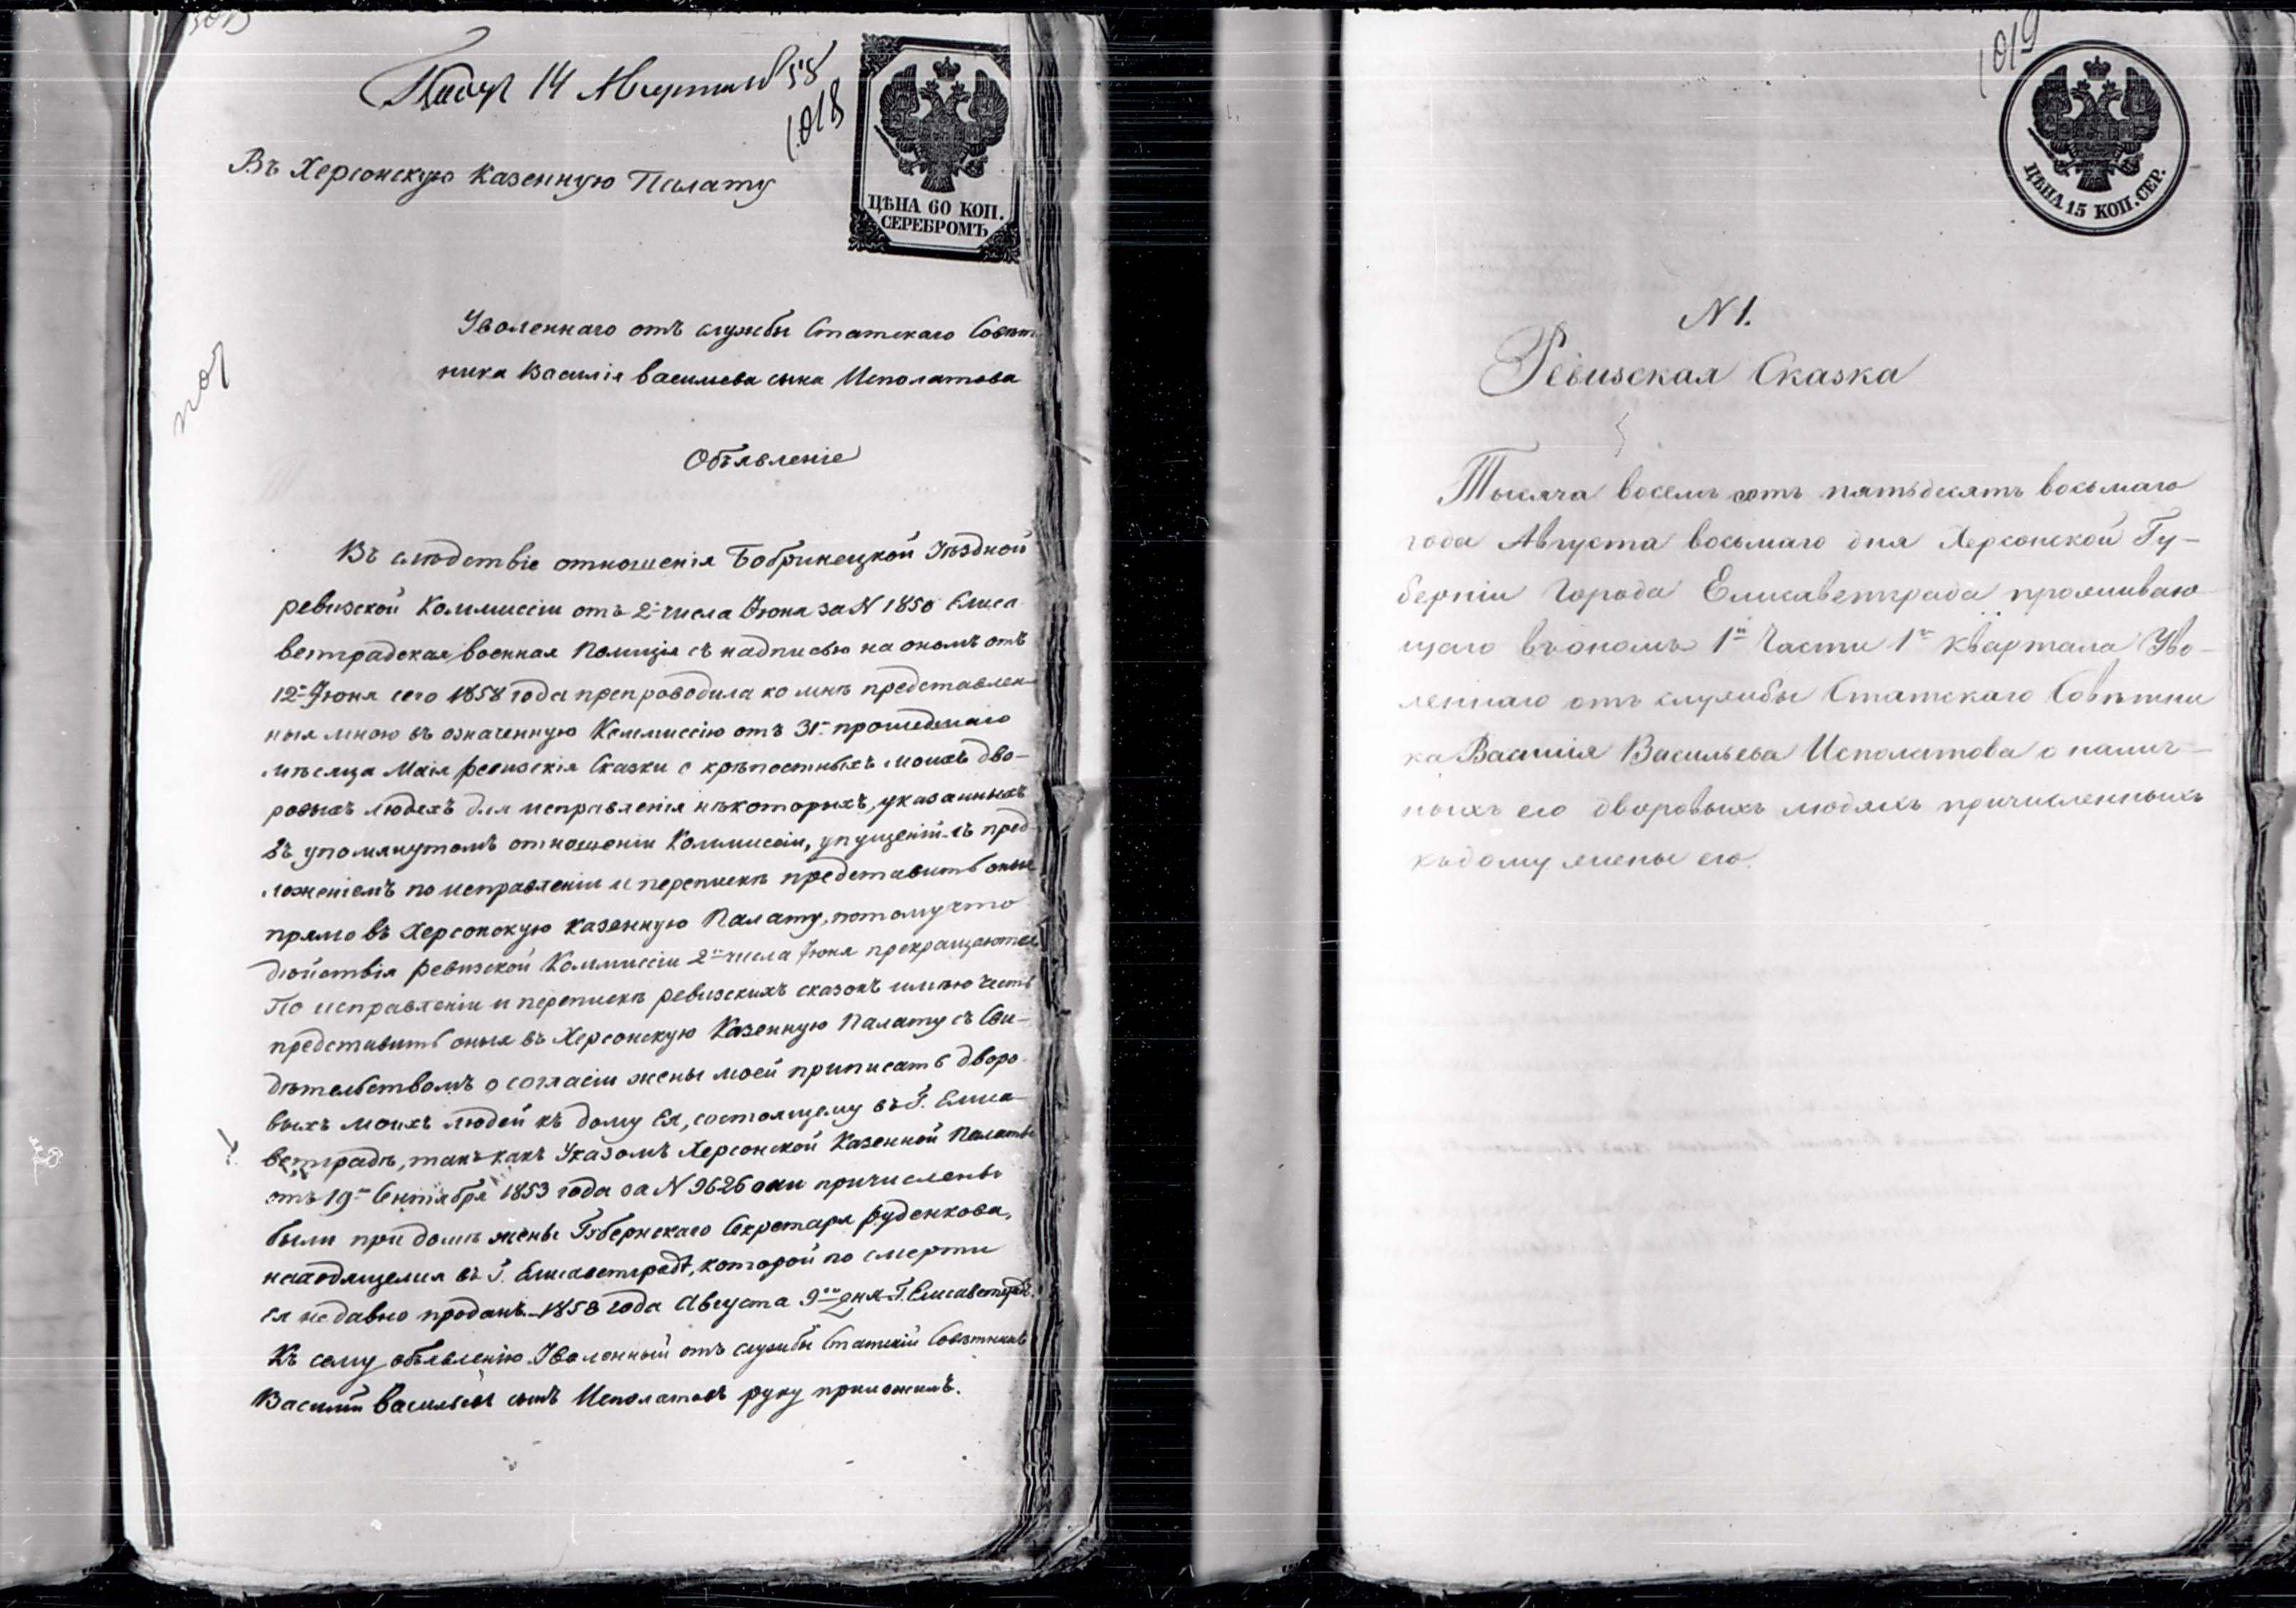 14 Августа 1858
1018
Въ Херсонскую Казенную Палату
ЦѢНА 60 КОП.
СЕРЕБРОМЪ
Уволеннаго отъ службы Статскаго Совѣт
ника Василія Васильева сына Исполатова
Объявленіе
Въ слѣдствіе отношенія Бобринецкой Уѣздной
ревизской Коммиссіи отъ 2го числа Іюня за N 1850 Елиса
ветградская военная Полиція съ надписью на ономъ отъ
12го Іюня сего 1858 года препроводила ко мнѣ представлен
ныя мною въ означенную Коммиссію отъ 31го прошедшаго
мѣсяца Маія ревизскія Сказки о крѣпостныхъ моихъ дво-
ровыхъ людяхъ для исправленія нѣкоторыхъ, указанныхъ
въ упомянутомъ отношеніи Коммиссіи, упущеній съ пред
ложеніемъ по исправленіи и перепискѣ представить оныя
прямо въ Херсонскую Казенную Палату, потому что
дѣйствія ревизской Коммиссіи 2го числа Іюня прекращаются
По исправленіи и перепискѣ ревизскихъ сказокъ имѣю честь
представить оныя въ Херсонскую Казенную Палату съ Сви-
дѣтельствомъ о согласіи жены моей приписать дворо
выхъ моихъ людей къ дому Ея, состоящему въ Г. Елиса
ветградѣ, такъ какъ Указомъ Херсонской Казенной Палаты
отъ 19го Сентября 1853 года за N 9626 они причислены
были при домѣ жены Губернскаго Секретаря Руденкова,
находящемся въ Г. Елисаветградѣ, которой по смерти
ея недавно проданъ. 1858 года Августа 9го дня Г. Елисаветградъ.
Къ сему объявленію Уволенный отъ службы Статскій Совѣтникъ
Василій Васильевъ сынъ Исполатовъ руку приложилъ.
1019
ЦѢНА 15 КОП. СЕР.
N 1.
Ревизская Сказка
Тысяча восемь сотъ пятьдесятъ восьмаго
года Августа восьмаго дня Херсонской Гу-
берніи Города Елисаветграда проживаю
щаго въ ономъ 1й Части 1го Квартала Уво-
леннаго отъ службы Статскаго Совѣтни
ка Василія Васильева Исполатова о налич-
ныхъ его дворовыхъ людяхъ причисленныхъ
къ дому жены его.